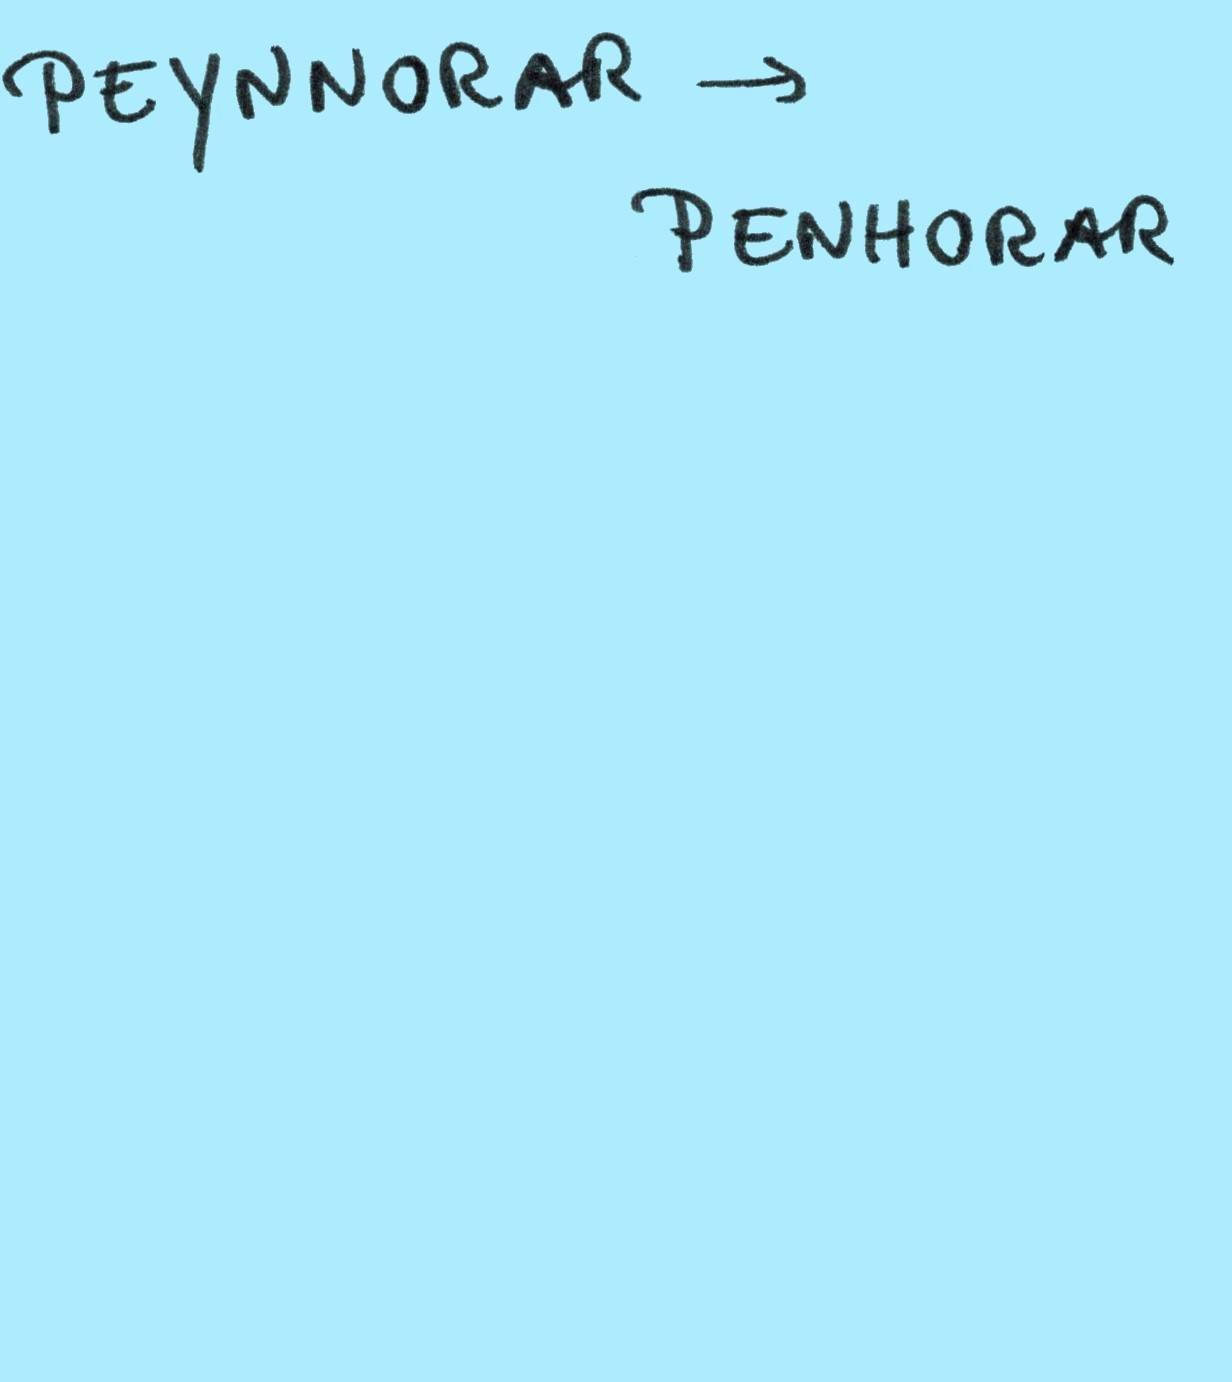 PEYNNORAR →
PENHORAR